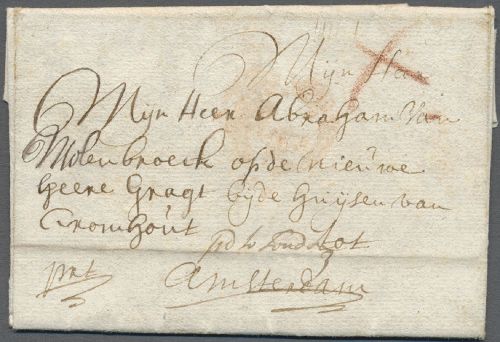 Mijn Heer
Mijn Heer Abraham Van
Molenbroeck op de nieuwe
heere Gragt bij de Huijsen van
Cromhout
tot
pnt
Amsterdam